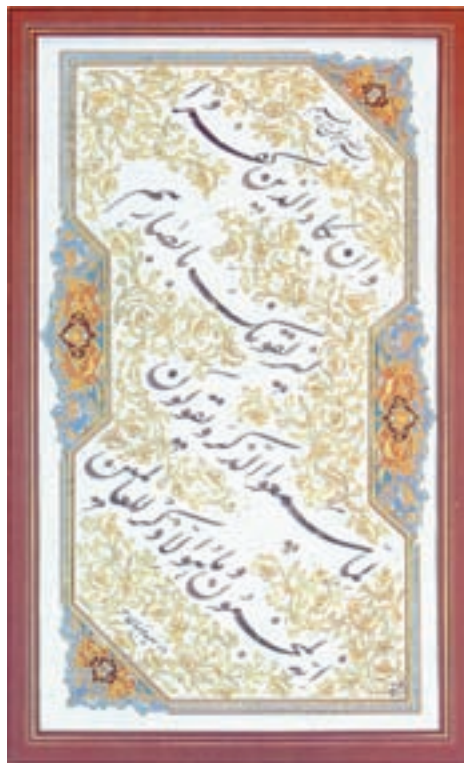 بسم الله الرحمن الرحیم
وان یکاد الذین کفروا
لیزلقونک بابصارهم
لما سمعوا الذکر و یقولون
انه لمجنون و ما هو الا ذکر للعالمین